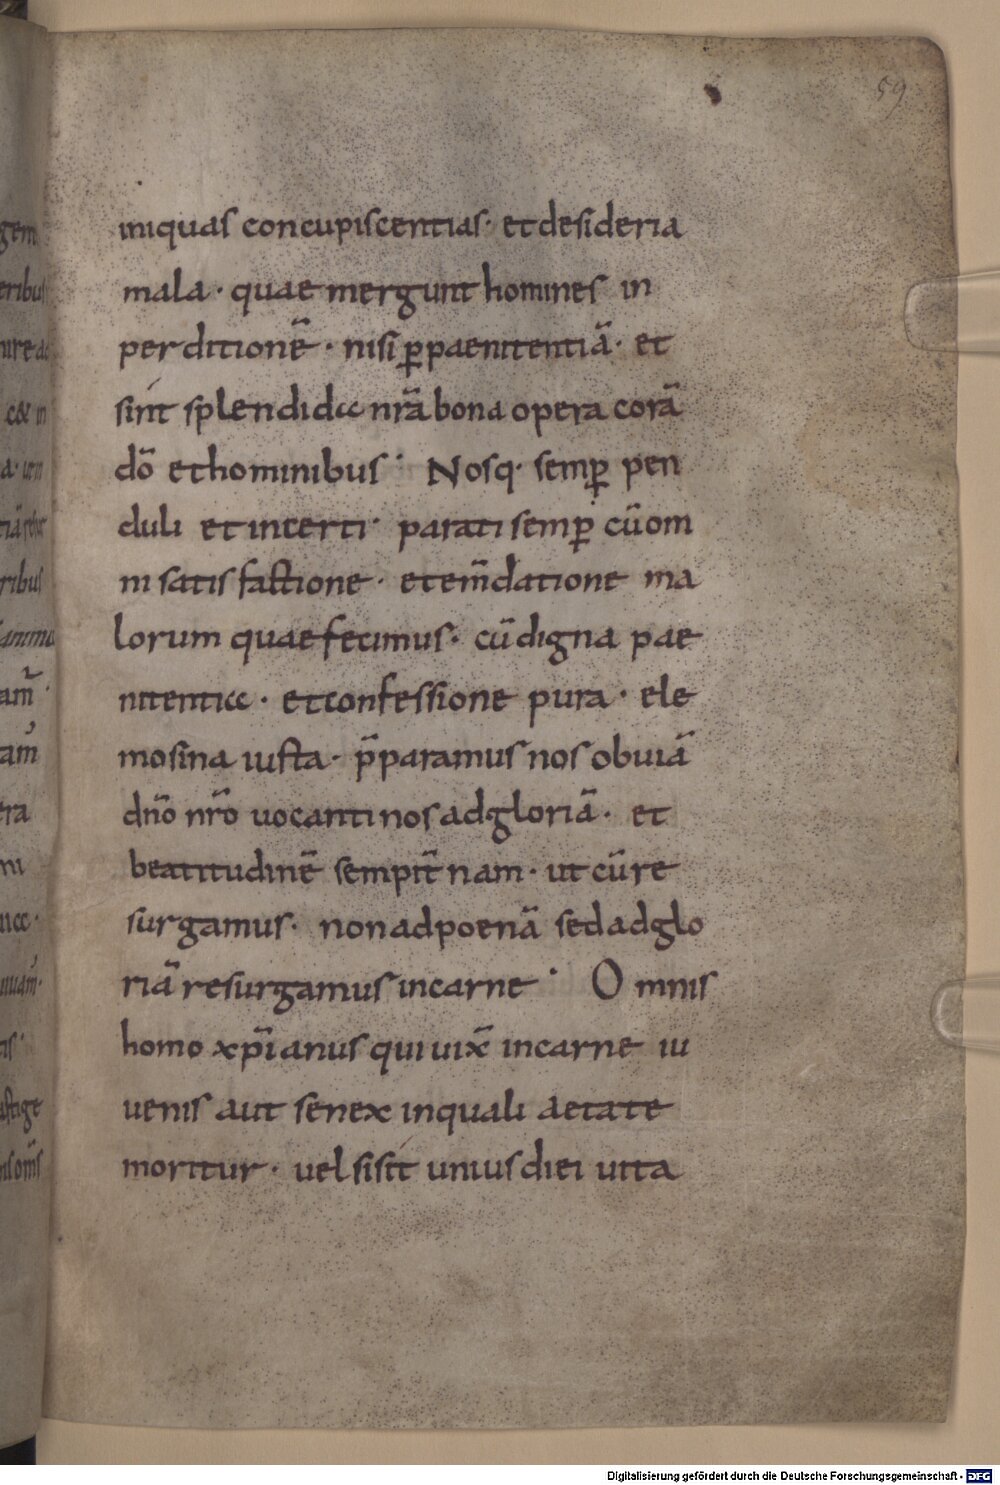 59
iniquas concupiscentias· et desideria
mala· quae mergunt homines in
perditionē· nisi ꝑ paenitentiā· et
sint splendida nr̄a bona opera corā
dō et hominibus· Nosq· semꝑ pen
duli et incerti· parati semꝑ cū om
ni satisfactione· et em̄datione ma
lorum quae fecimus· cū digna pae
nitentia· et confessione pura· ele
mosina iusta· p̄paramus nos obuiā
dn̄o nr̄o uocanti nos ad gloriā· et
beatitudinē sempit̄nam· ut cū re
surgamus· non ad poenā sed ad glo
riā resurgamus in carne· Omnis
homo xp̄ianus qui uix̄ in carne iu
uenis aut senex in quali aetate
moritur· uel si sit unius diei uita
Digitalisierung gefördert durch die Deutsche Forschungsgemeinschaft - DFG